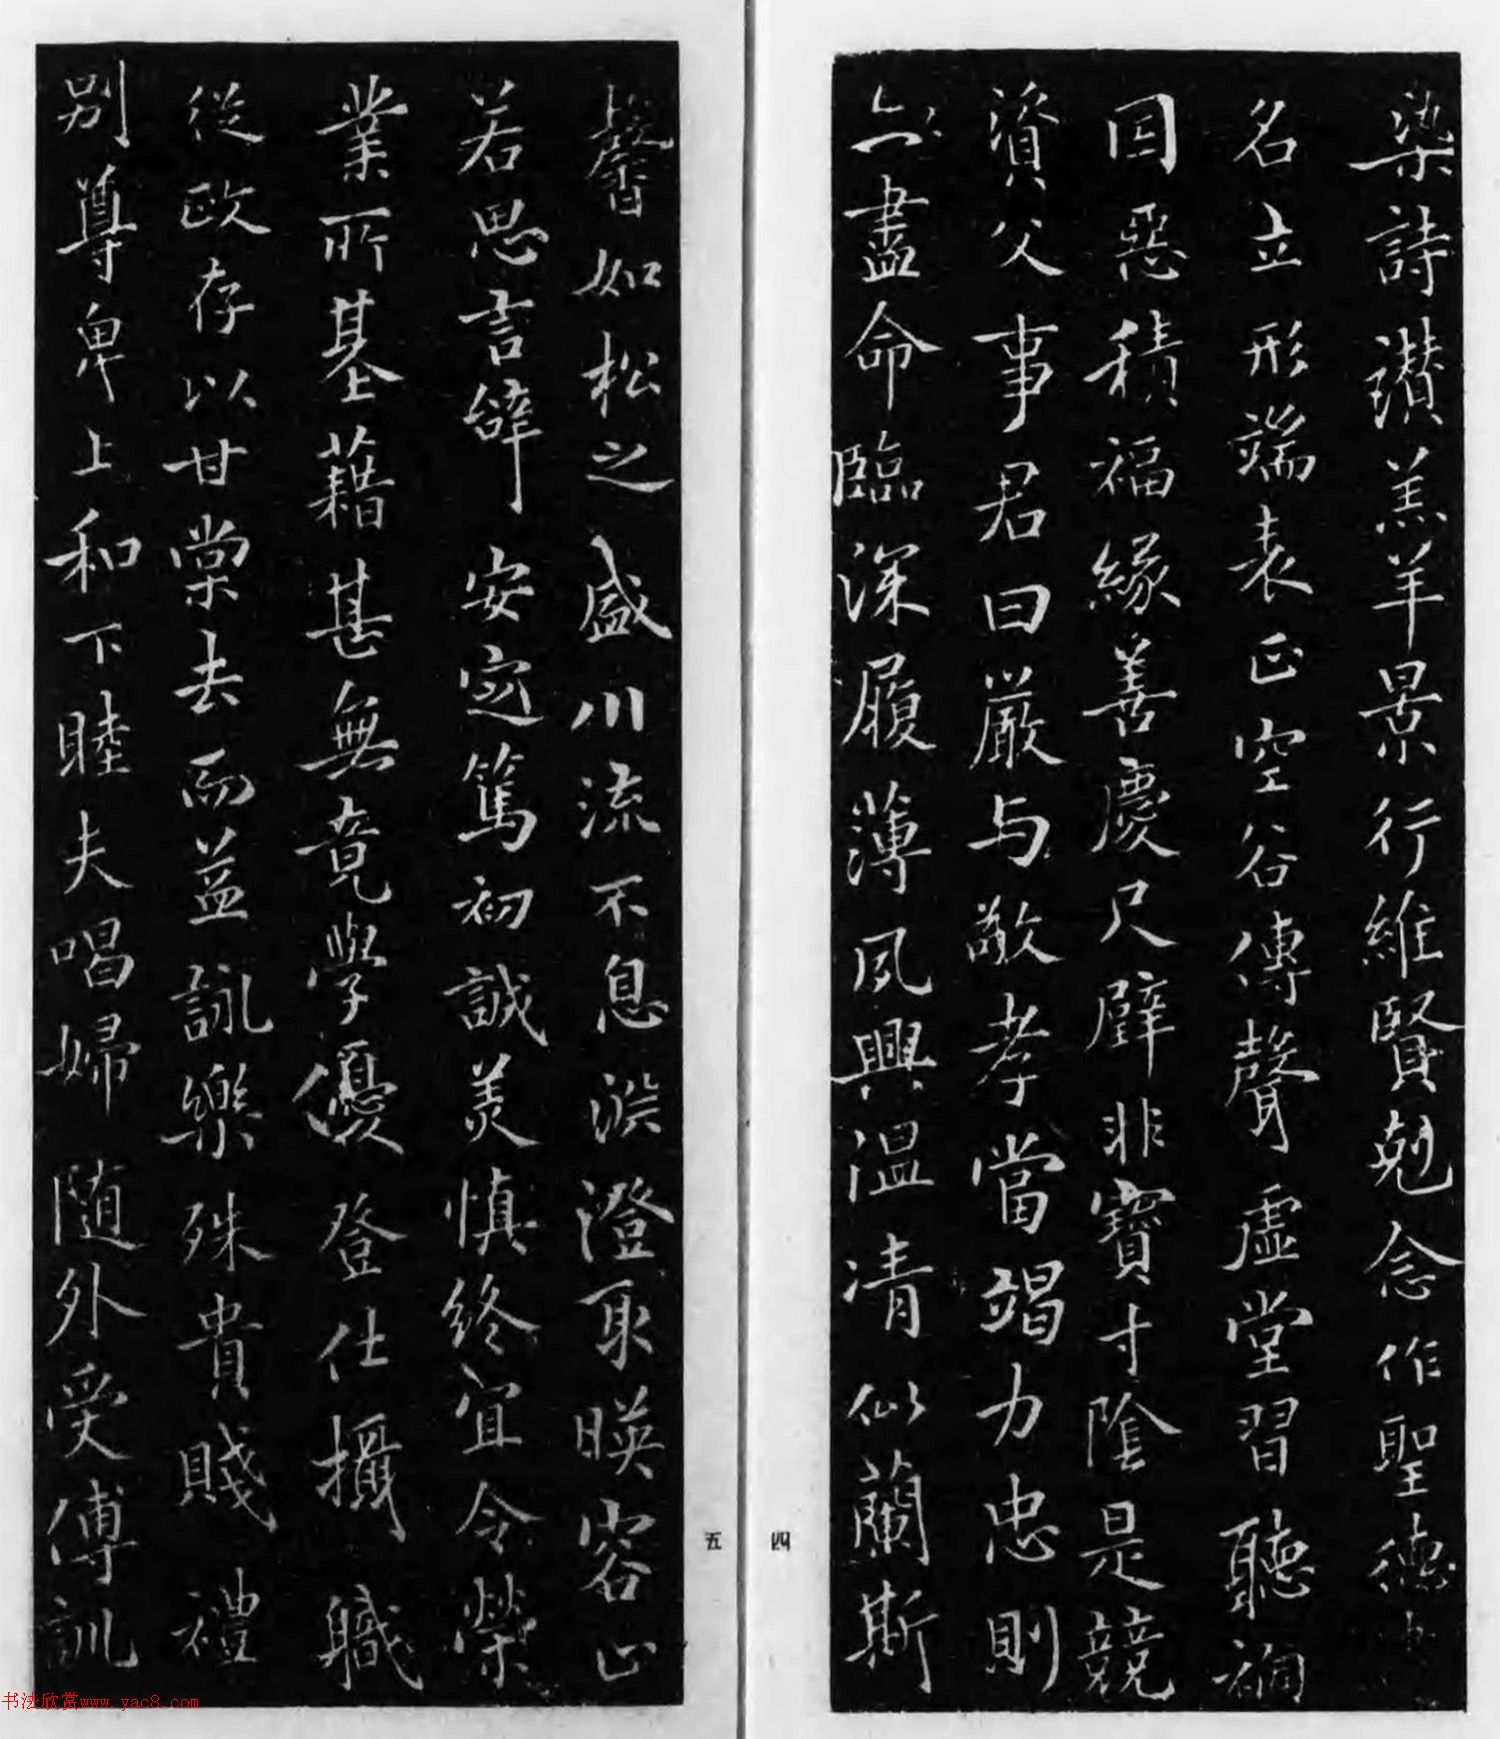 染詩讃羔羊景行維賢剋念作聖德建
名立形端表正空谷傳聲虛堂習聽禍
因惡積福緣善慶尺璧非寶寸陰是競
資父事君曰嚴与敬孝當竭力忠則
盡命臨深履薄夙興温凊似蘭斯
四
馨如松之盛川流不息淵澄取暎容止
若思言辭安定篤初誠美慎終宜令榮
業所基藉甚無竟學優登仕攝職
從政存以甘棠去而益詠樂殊貴賤禮
別尊卑上和下睦夫唱婦随外受傅訓
五
书法欣赏www.yac8.com